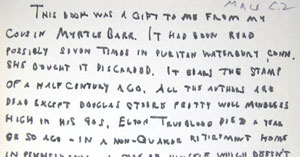 MALS C.2
THIS BOOK WAS A GIFT TO ME FROM MY
COUSIN MYRTLE BARR. IT HAD BEEN READ
POSSIBLY SEVEN TIMES IN PURITAN WATERBURY CONN.
SHE BOUGHT IT DISCARDED. IT BEARS THE STAMP
OF A HALF CENTURY AGO. ALL THE AUTHORS ARE
DEAD EXCEPT DOUGLAS STEERE PRETTY WELL MINDLESS
HIGH IN HIS 90s, ELTON TRUEBLOOD DIED A YEAR
OR SO AGO - IN A NON-QUAKER RETIREMENT HOME
IN PENNSYLVANIA HIMSELF WHICH DOESN'T